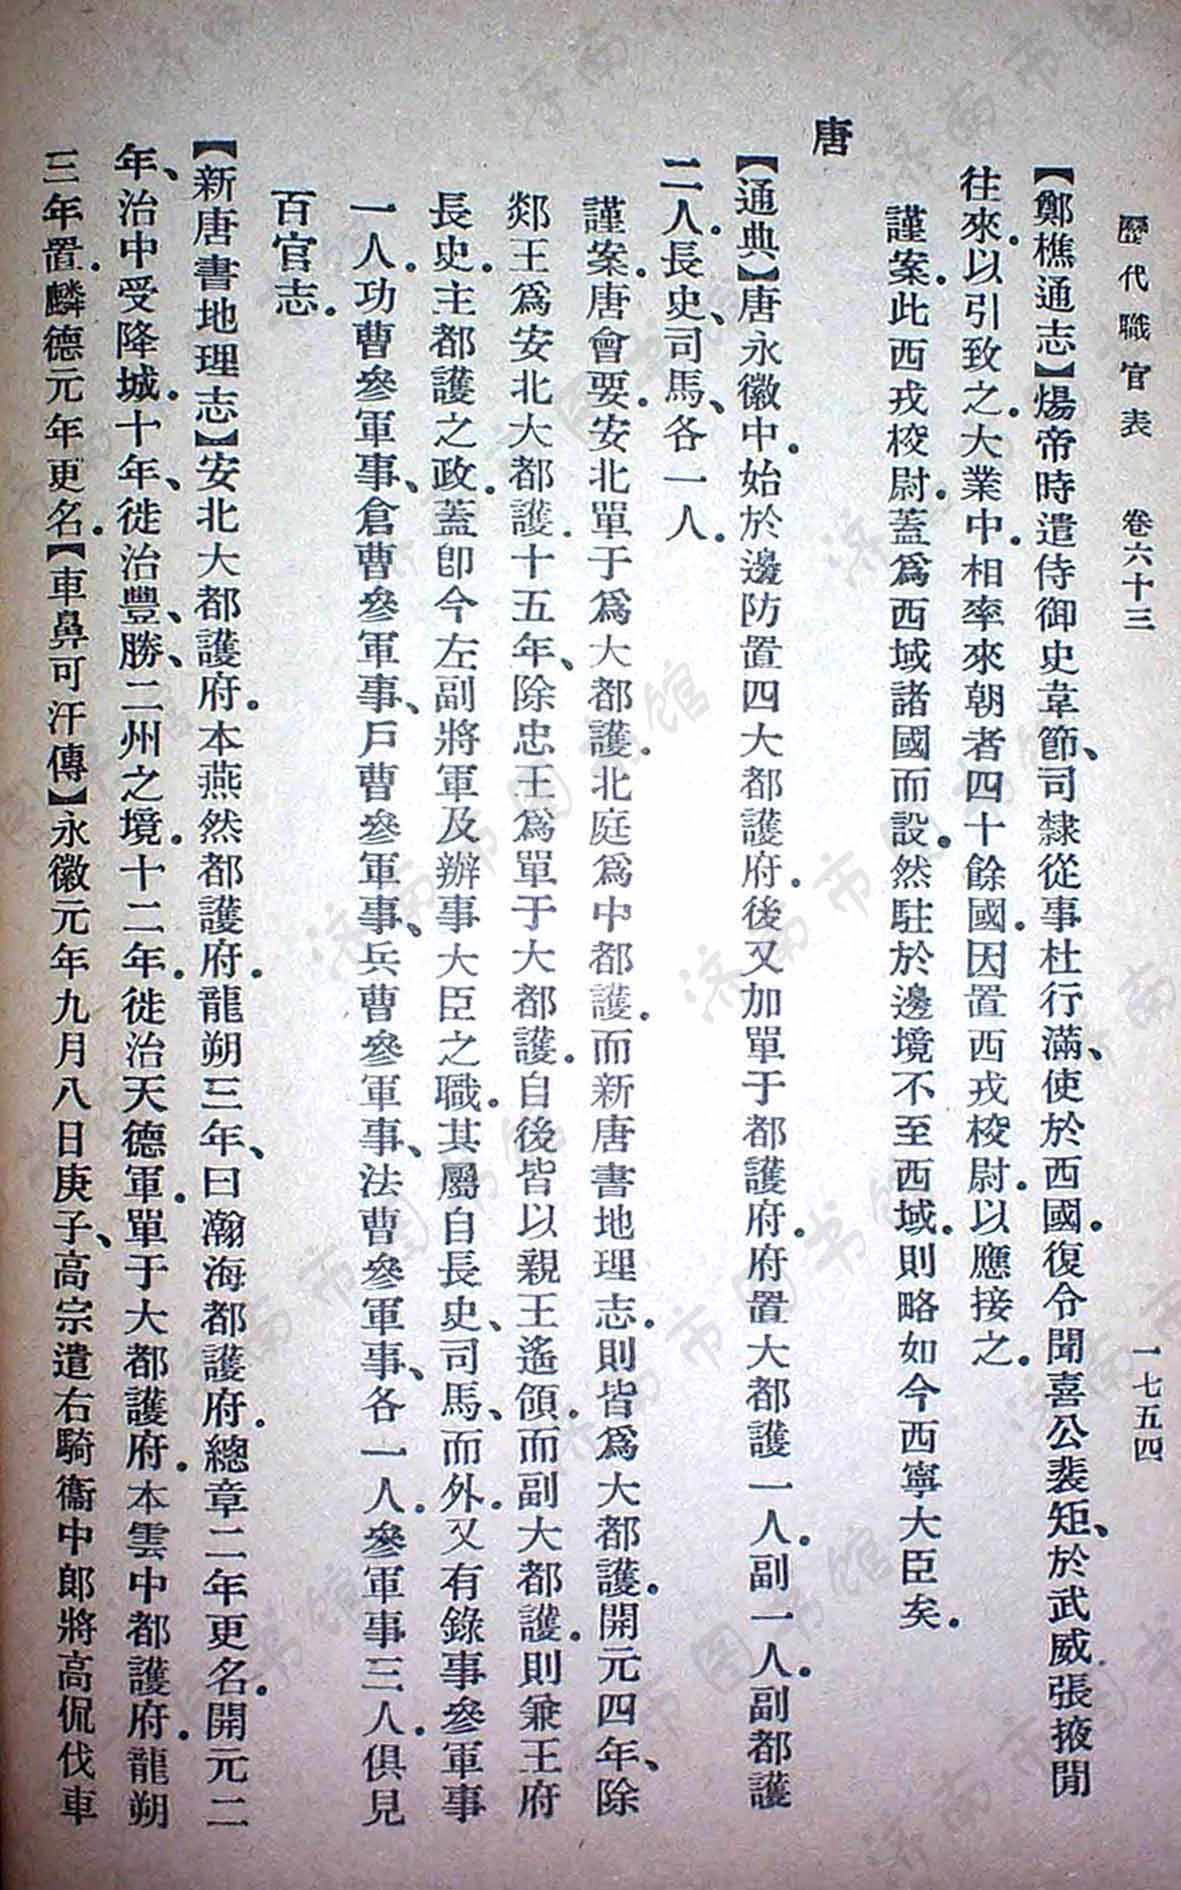 歷代職官表　卷六十三　一七五四
【鄭樵通志】煬帝時遣侍御史韋節、司隸從事杜行滿、使於西國。復令聞喜公裴矩、於武威張掖閒
往來。以引致之。大業中。相率來朝者四十餘國。因置西戎校尉。以應接之。
謹案。此西戎校尉。蓋爲西域諸國而設。然駐於邊境不至西域。則略如今西寧大臣矣。
唐
【通典】唐永徽中。始於邊防置四大都護府。後又加單于都護府。府置大都護一人。副一人。副都護
二人。長史、司馬、各一人。
謹案。唐會要。安北單于爲大都護。北庭爲中都護。而新唐書地理志。則皆爲大都護。開元四年、除
郯王爲安北大都護。十五年、除忠王爲單于大都護。自後皆以親王遙領。而副大都護。則兼王府
長史。主都護之政。蓋卽今左副將軍及辦事大臣之職。其屬自長史、司馬、而外。又有錄事參軍事
一人。功曹參軍事、倉曹參軍事、戶曹參軍事、兵曹參軍事、法曹參軍事、各一人。參軍事三人。俱見
百官志。
【新唐書地理志】安北大都護府。本燕然都護府。龍朔三年、曰瀚海都護府。總章二年更名。開元二
年、治中受降城。十年、徙治豐、勝、二州之境。十二年。徙治天德軍。單于大都護府。本雲中都護府。龍朔
三年置。麟德元年更名。【車鼻可汗傳】永徽元年九月八日庚子、高宗遣右騎衞中郎將高侃伐車
济南市图书馆